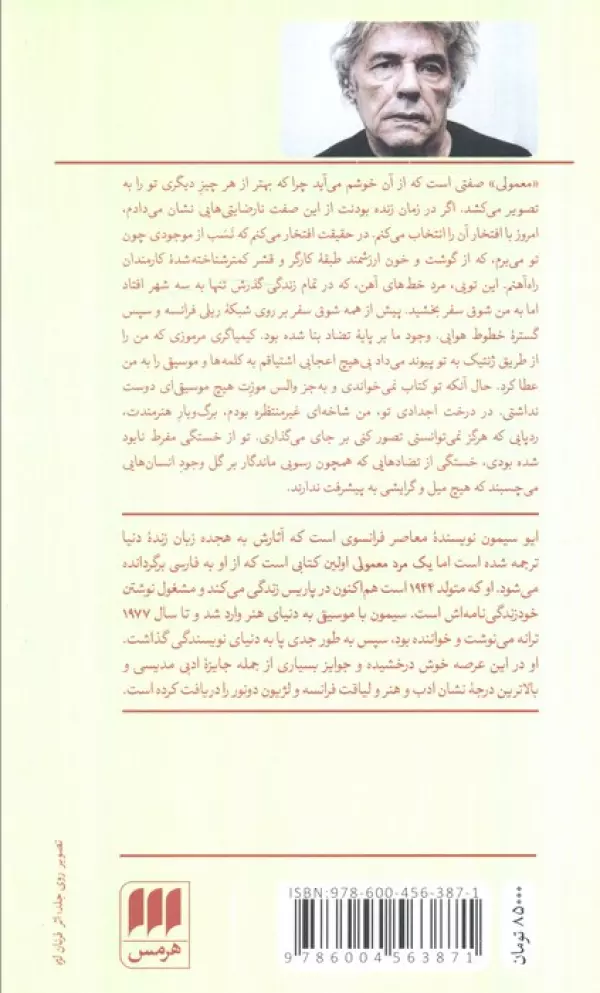 «معمولی» صفتی است که از آن خوشم می‌آید چرا که بهتر از هر چیز دیگری تو را به
تصویر می‌کشد. اگر در زمان زنده بودنت از این صفت نارضایتی‌هایی نشان می‌دادم،
امروز با افتخار آن را انتخاب می‌کنم. در حقیقت افتخار می‌کنم که نَسَب از موجودی چون
تو می‌برم، که از گوشت و خون ارزشمند طبقهٔ کارگر و قشر کمترشناخته‌شدهٔ کارمندان
راه‌آهنم. این تویی، مردِ خط‌های آهن، که در تمام زندگی گذرش تنها به سه شهر افتاد
اما به من شوق سفر بخشید. پیش از همه شوق سفر بر روی شبکهٔ ریلی فرانسه و سپس
گسترهٔ خطوط هوایی. وجود ما بر پایهٔ تضاد بنا شده بود. کیمیاگری مرموزی که من را
از طریق ژنتیک به تو پیوند می‌داد بی‌هیچ اعجابی اشتیاقم به کلمه‌ها و موسیقی را به من
عطا کرد. حال آنکه تو کتاب نمی‌خواندی و به‌جز والس موزت هیچ موسیقی‌ای دوست
نداشتی. در درخت اجدادی تو، من شاخه‌ای غیرمنتظره بودم، برگ‌وبارِ هنرمندت،
ردپایی که هرگز نمی‌توانستی تصور کنی بر جای می‌گذاری. تو از خستگی مفرط نابود
شده بودی، خستگی از تضادهایی که همچون رسوبی ماندگار بر گل وجودِ انسان‌هایی
می‌چسبند که هیچ میل و گرایشی به پیشرفت ندارند.
ایو سیمون نویسندهٔ معاصر فرانسوی است که آثارش به هجده زبان زندهٔ دنیا
ترجمه شده است اما یک مرد معمولی اولین کتابی است که از او به فارسی برگردانده
می‌شود. او که متولد ۱۹۴۴ است هم‌اکنون در پاریس زندگی می‌کند و مشغول نوشتن
خودزندگی‌نامه‌اش است. سیمون با موسیقی به دنیای هنر وارد شد و تا سال ۱۹۷۷
ترانه می‌نوشت و خواننده بود، سپس به طور جدی پا به دنیای نویسندگی گذاشت.
او در این عرصه خوش درخشیده و جوایز بسیاری از جمله جایزهٔ ادبی مدیسی و
بالاترین درجهٔ نشان ادب و هنر و لیاقت فرانسه و لژیون دونور را دریافت کرده است.
تصویر روی جلد: اثر فرنان لژه
هرمس
ISBN:978-600-456-387-1
9 786004 563871
۸۵۰۰۰ تومان